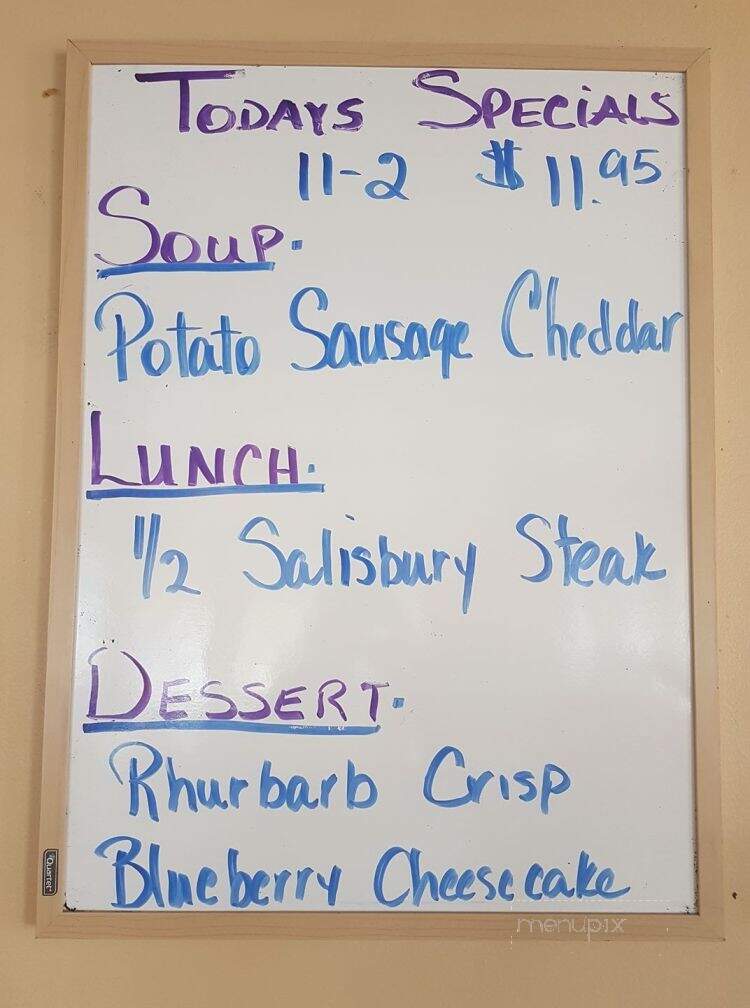 TODAYS SPECIALS
11-2 $11.95
SOUP.
Potato Sausage Cheddar
LUNCH.
1/2 Salisbury Steak
DESSERT.
Rhurbarb Crisp
Blueberry Cheesecake
Quartet
menupix